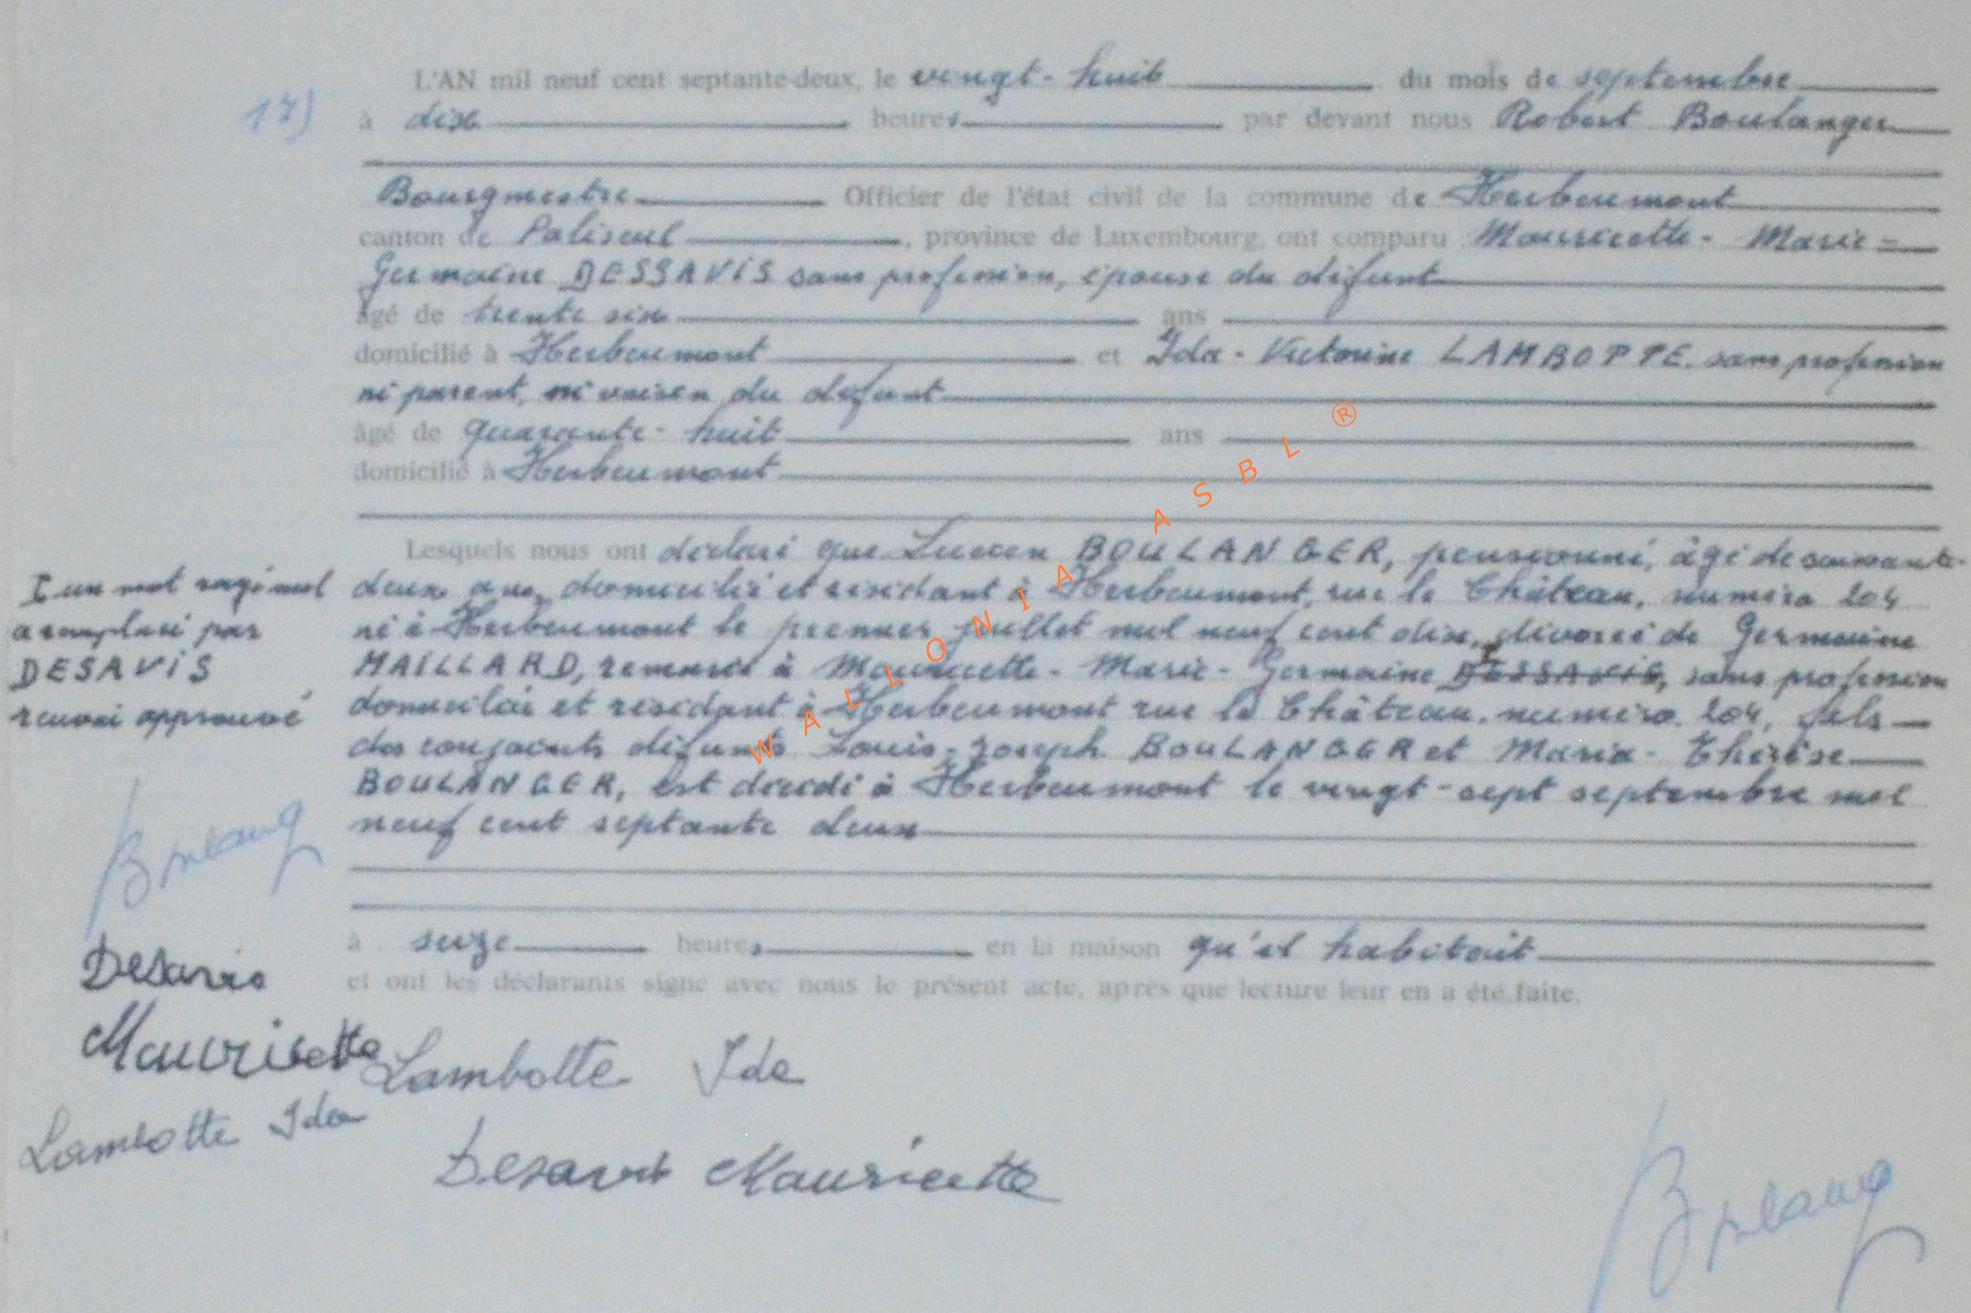 17)
L'AN mil neuf cent septante-deux, le vingt-huit du mois de septembre
à dix heures par devant nous Robert Boulanger
Bourgmestre Officier de l'état civil de la commune de Herbeumont
canton de Paliseul, province de Luxembourg, ont comparu Mauricette-Marie-
Germaine DESSAVIS sans profession, épouse du défunt
âgé de trente six ans
domicilié à Herbeumont et Ida-Victorine LAMBOTTE. sans profession
ni parent, ni voisin du défunt
âgé de quarante-huit ans
domicilié à Herbeumont
Lesquels nous ont déclaré que Lucien BOULANGER, pensionné, âgé de soixante-
deux ans, domicilié et résidant à Herbeumont, rue le Château, numéro 204
né à Herbeumont le premier juillet mil neuf cent dix, divorcé de Germaine
MAILLARD, remarié à Mauricette-Marie-Germaine DESSAVIS, sans profession
domiciliée et résidant à Herbeumont rue le Château. numéro 204, fils
des conjoints défunts Louis-Joseph BOULANGER et Maria-Thérèse
BOULANGER, est décédé à Herbeumont le vingt-sept septembre mil
neuf cent septante deux
à seize heures en la maison qu'il habitait
et ont les déclarants signé avec nous le présent acte, après que lecture leur en a été faite.
I un mot rayé nul
a remplacé par
DESAVIS
renvoi approuvé
Desavis
Mauricette
Lambotte Ida
Lambotte Ida
Desavis Mauricette
WALLONIA ASBL ®